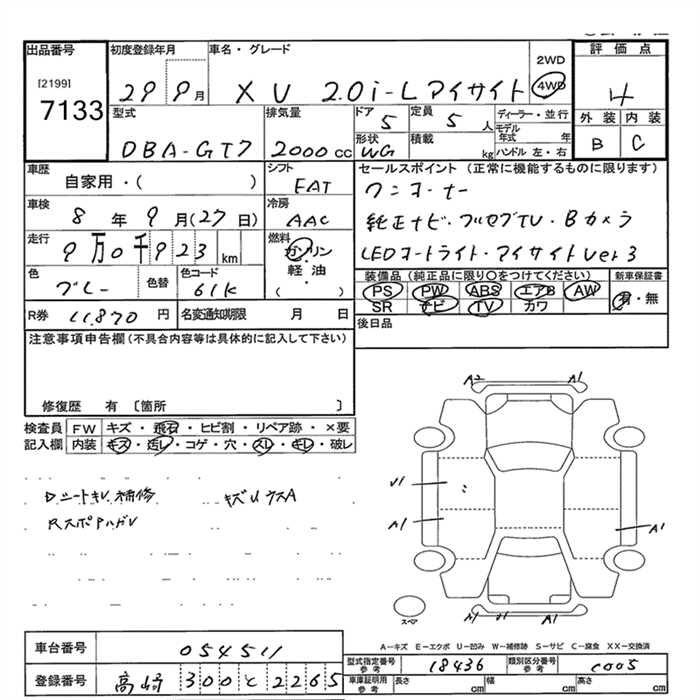 出品番号 初度登録年月 車名・グレード 2WD 評価点
[2199] 7133 29 9月 XU 2.0i-Lアイサイト 4WD 4
型式 排気量 ドア 定員 ディーラー・並行 外装 内装
DBA-GT7 2000cc 5 5人 モデル年式 年 B C
形状 WG 積載 kg ハンドル 左・右
車歴 シフト セールスポイント(正常に機能するものに限ります)
自家用・( ) FAT ワンオーナー
車検 冷房
8年9月(27日) AAC 純正ナビ・フルセグTV・Bカメラ
走行 燃料
9万0千923km ガソリン LEDオートライト・アイサイトVer3
色 色替 色コード 軽油・ 装備品(純正品に限り○をつけてください) 新車保証書
ブルー 61K ( ) PS PW ABS エアB AW 有・無
SR ナビ TV カワ
R券 11,870円 名変通知期限 月 日 後日品
注意事項申告欄(不具合内容等は具体的に記入して下さい)
修復歴 有 〔箇所 〕
検査員 FW キズ・飛石・ヒビ割・リペア跡・×要
記入欄 内装 キズ・汚レ・コゲ・穴・スレ・キレ・破レ
Dシートキレ補修 キズUウスA
A2 A1
U1
A1 A1
A1 U1 A1
スペア
A−キズ E−エクボ U−凹み W−補修跡 S−サビ C−腐食 XX−交換済
車台番号 054511
型式指定番号 参考 18436 類別区分番号 参考 C005
登録番号 高崎 300 て 2265
車庫証明用 参考 長さ cm 幅 cm 高さ cm